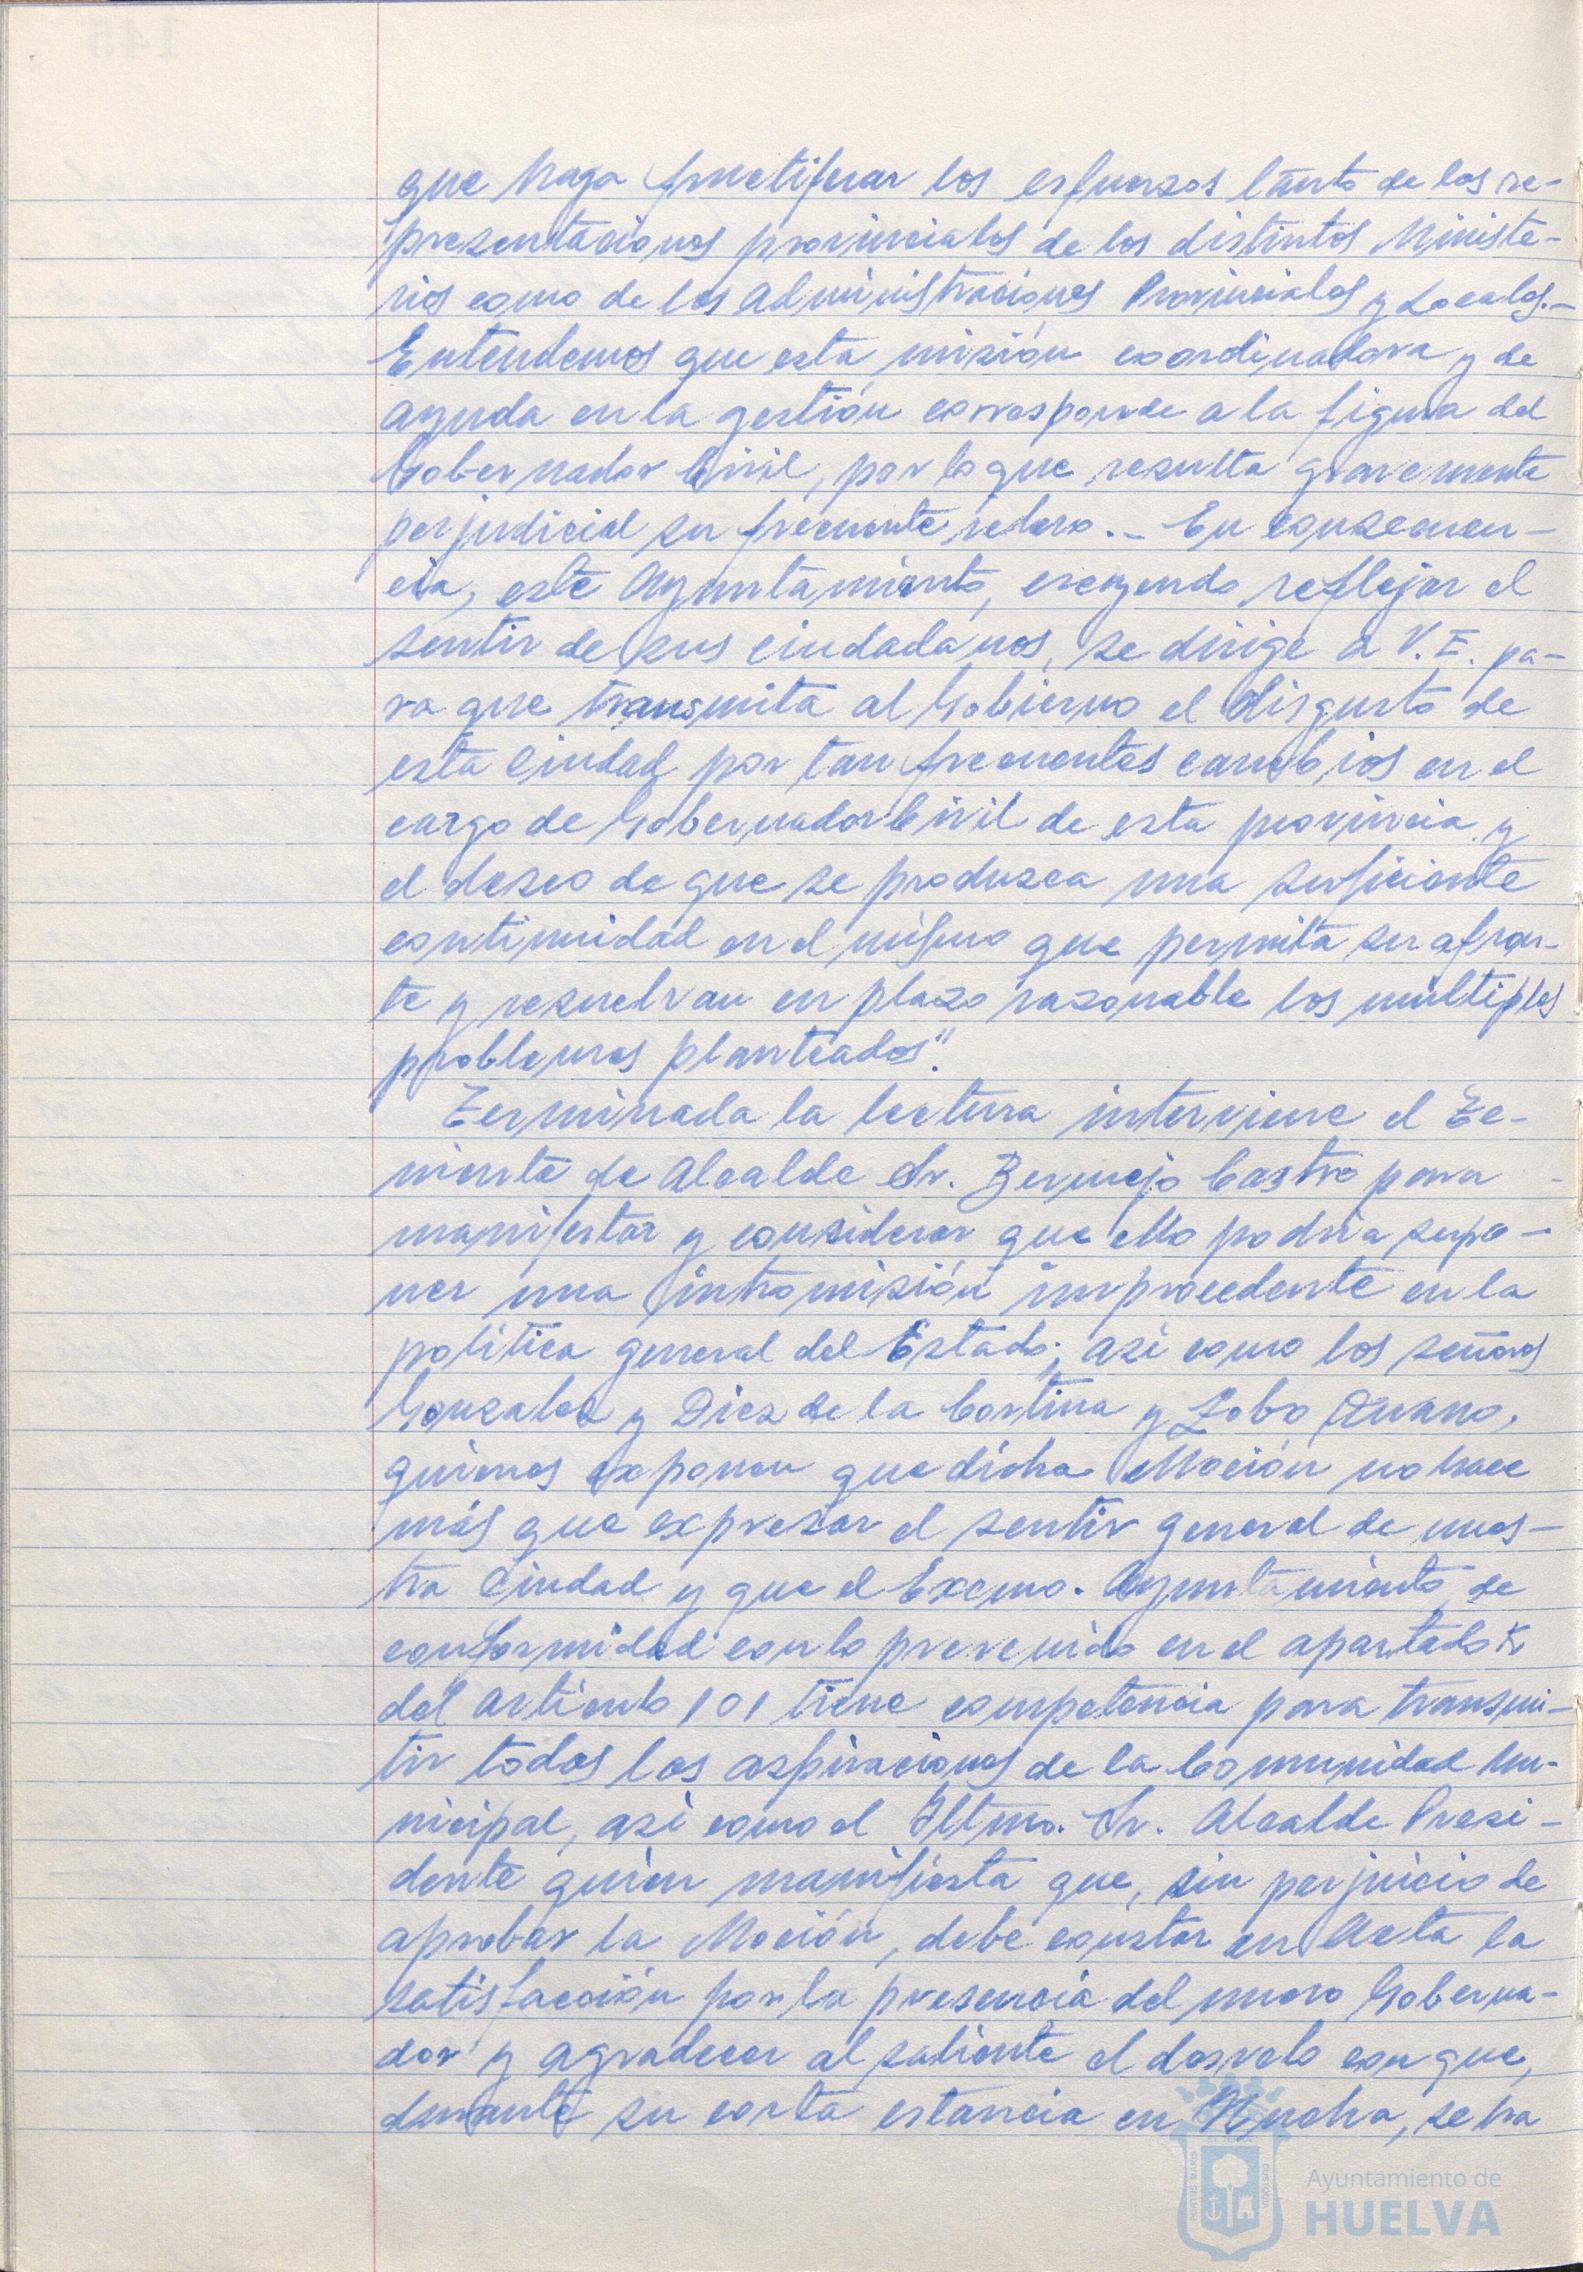 que haga fructiferar los esfuerzos tanto de las re-
presentaciones provinciales de los distintos Ministe-
rios como de las Administraciones Provinciales y Locales.-
Entendemos que esta misión coordinadora y de
ayuda en la gestión corresponde a la figura del
Gobernador Civil, por lo que resulta gravemente
perjudicial su frecuente relevo.- En consecuen-
cia, este Ayuntamiento, creyendo reflejar el
sentir de sus ciudadanos, se dirige a V.E. pa-
ra que transmita al Gobierno el disgusto de
esta Ciudad por tan frecuentes cambios en el
cargo de Gobernador Civil de esta provincia y
el deseo de que se produzca una suficiente
continuidad en el mismo que permita se afron-
te y resuelvan en plazo razonable los múltiples
problemas planteados".
Terminada la lectura interviene el Te-
niente de Alcalde Sr. Bermejo Castro para
manifestar y considerar que ello podría supo-
ner una intromisión improcedente en la
política general del Estado; así como los señores
González y Diez de la Cortina y Lobo
quienes exponen que dicha Moción no hace
más que expresar el sentir general de nues-
tra Ciudad y que el Excmo. Ayuntamiento, de
conformidad con lo prevenido en el apartado K
del artículo 101 tiene competencia para transmi-
tir todas las aspiraciones de la Comunidad Mu-
nicipal, así como el Iltmo. Sr. Alcalde Presi-
dente quien manifiesta que, sin perjuicio de
aprobar la Moción, debe constar en Acta la
satisfacción por la presencia del nuevo Goberna-
dor y agradecer al saliente el desvelo con que,
durante su corta estancia en Huelva, se ha
Ayuntamiento de
HUELVA